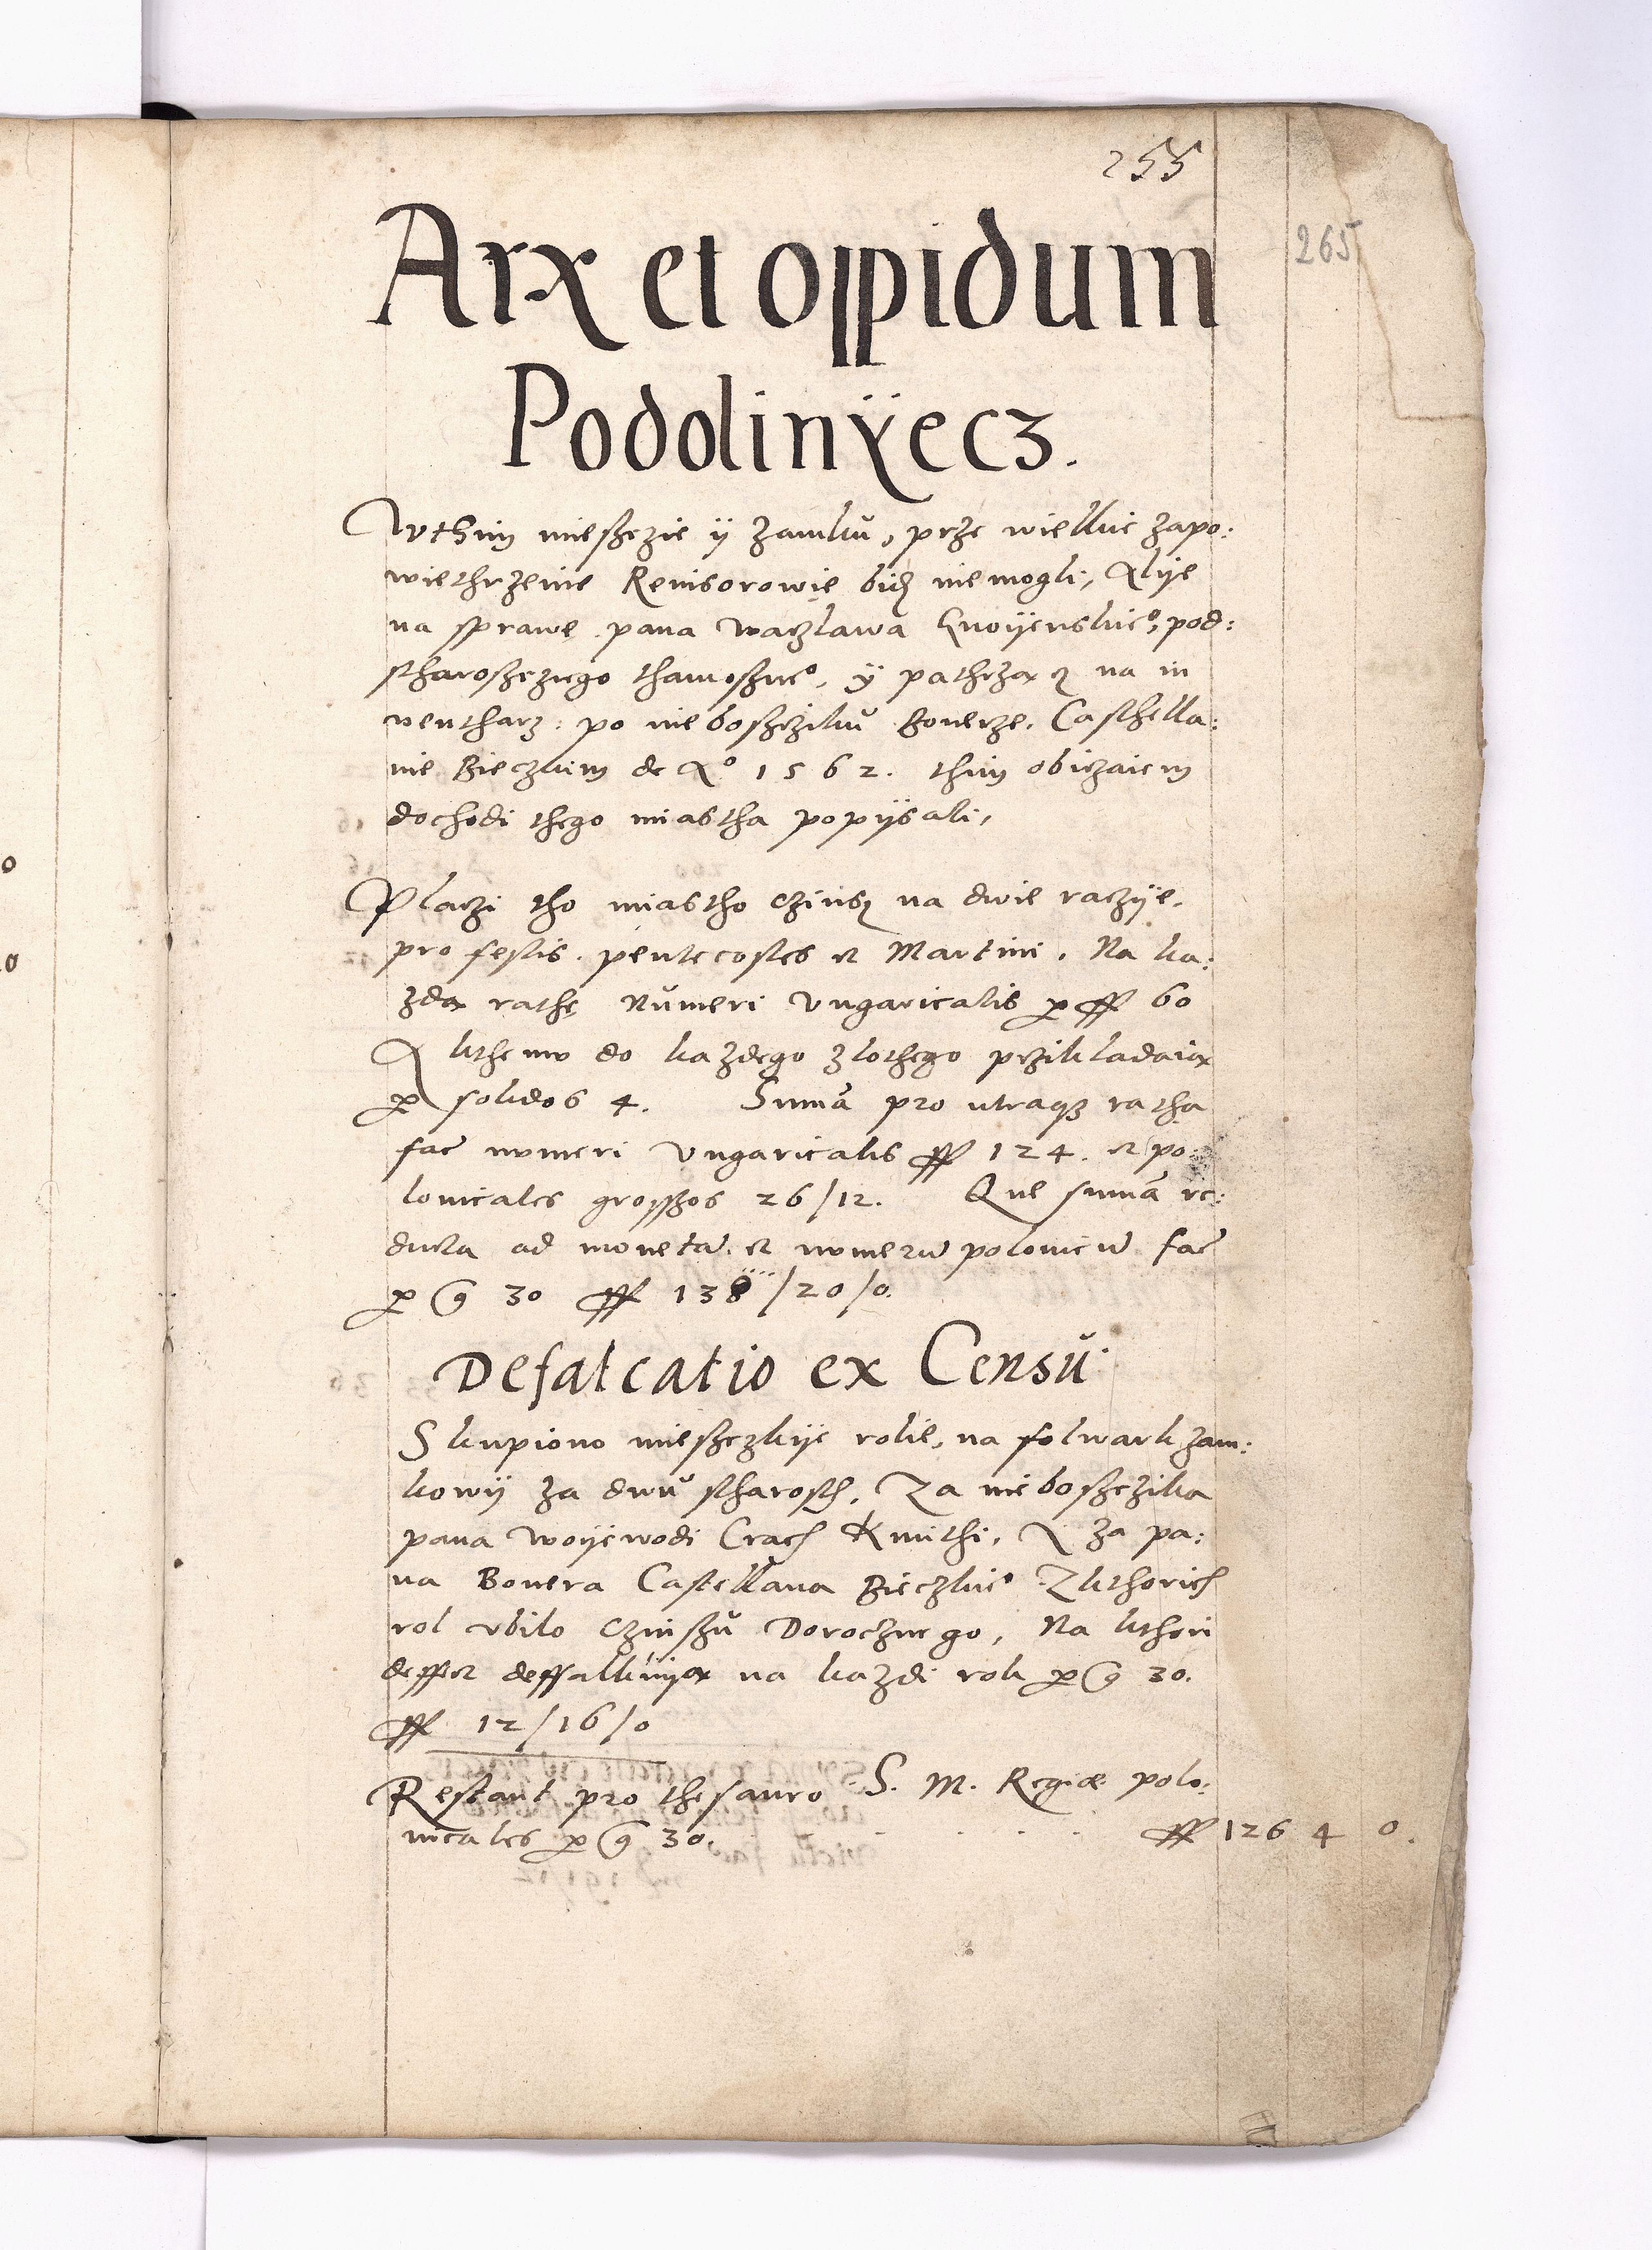 255
265
Arx et oppidum
Podolinÿecz.
Wthim miesczie ÿ zamku, prze wielkie zapo:
wiethrzenie Revisorowie bicz nie mogli, Alÿe
na sprawę pana Waczlawa Gnoÿenskie°, pod:
stharosczego thamoszne°, ÿ patrzax̨cz na in
wentharz po nieboszcziku Bonerze, Casthella:
nie Bieczkim de A° 1562. thim obiczaiem
dochodi thego miastha popÿsali,
Placzi tho miastho czinsz na dwie raczÿe,
pro festis pentecostes et Martini. Na ka:
zdą rathę Numeri Vngaricalis per ff 60
A kthemu do kazdego zlothego przikladaią
per solidos 4. Suma pro utraqz ratha
fac numeri Vngaricalis ff 124. et po:
lonicales grosszos 26/12. Que suma re:
ducta ad moneta et numeru polonicu fac
per g 30 ff 138/20/0.
Defalcatio ex Censu
Skupiono miesczkÿe rolie, na folwark zam:
kowÿ za dwu stharosth, Za nieboszczika
pana woÿewodi Crac Kmithi, A za pa:
na Bonera Castellana Bieczkie° Zkthorich
rol ubilo czinszu Dorocznego, Na kthori
deffect deffalkuÿą na kazdi rok per g 30.
ff 12/16/0
Restant pro thesauro S. M. Regiæ polo:
nicales per g 30. . . . . ff 126 4 0.